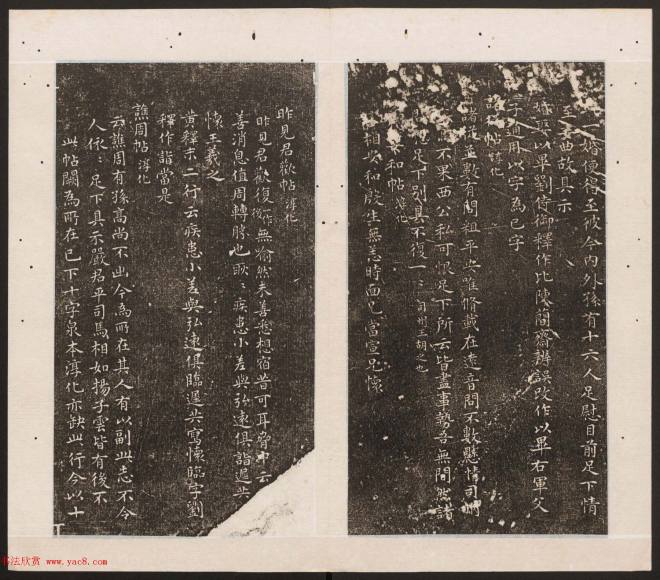 婚便得至彼今内外孫有十六人足慰目前足下情
至委曲故具示
婚畢以畢劉侍御釋作比陳簡齋辨誤改作以畢右軍父
字通用以字為已字
帖淳化
諸從並數有問粗平安唯修載在遠音問不數懸情司州
不果西公私可恨足下所云皆盡事勢吾無間然諸
足下別具不復一一司州王胡之也
和帖淳化
相安和殷生無恙時面也當宣兄懷
昨見君歡帖淳化
昨見君歡復作後無喻然未善悉想宿昔可耳脅中云
善消息值周轉勝也耿耿疾患小差與弘遠俱詣遲共
懷王羲之
黄釋末二行云疾患小差與弘遠俱臨遲共寫懷臨字劉
釋作詣當是
譙周帖淳化
云譙周有孫高尚不出今為所在其人有以副此志不令
人依依足下具示嚴君平司馬相如揚子雲皆有後不
此帖闕為所在已下十字泉本淳化亦缺此行今以十
书法欣赏 www.yac8.com